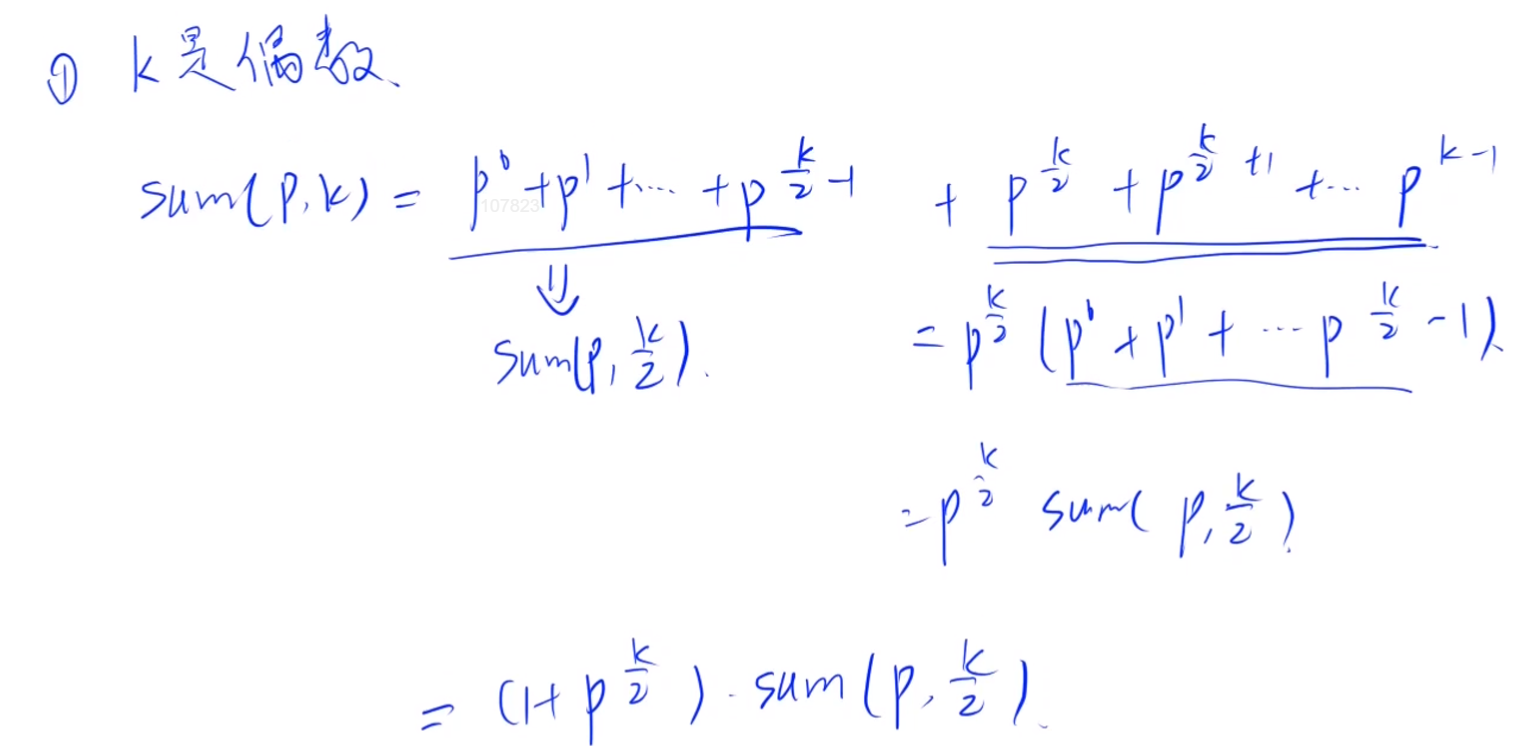 ① k是偶数、
sum(p,k) = p⁰+p¹+…+p^{k/2-1} + p^{k/2}+p^{k/2+1}+…p^{k-1}
107823
⇓
sum(p,k/2).
=p^{k/2}(p⁰+p¹+…p^{k/2-1}).
=p^{k/2} sum(p,k/2).
=(1+p^{k/2})·sum(p,k/2).